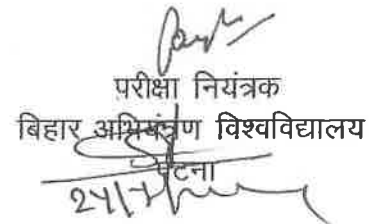 परीक्षा नियंत्रक
बिहार अभियंत्रण विश्वविद्यालय
पटना